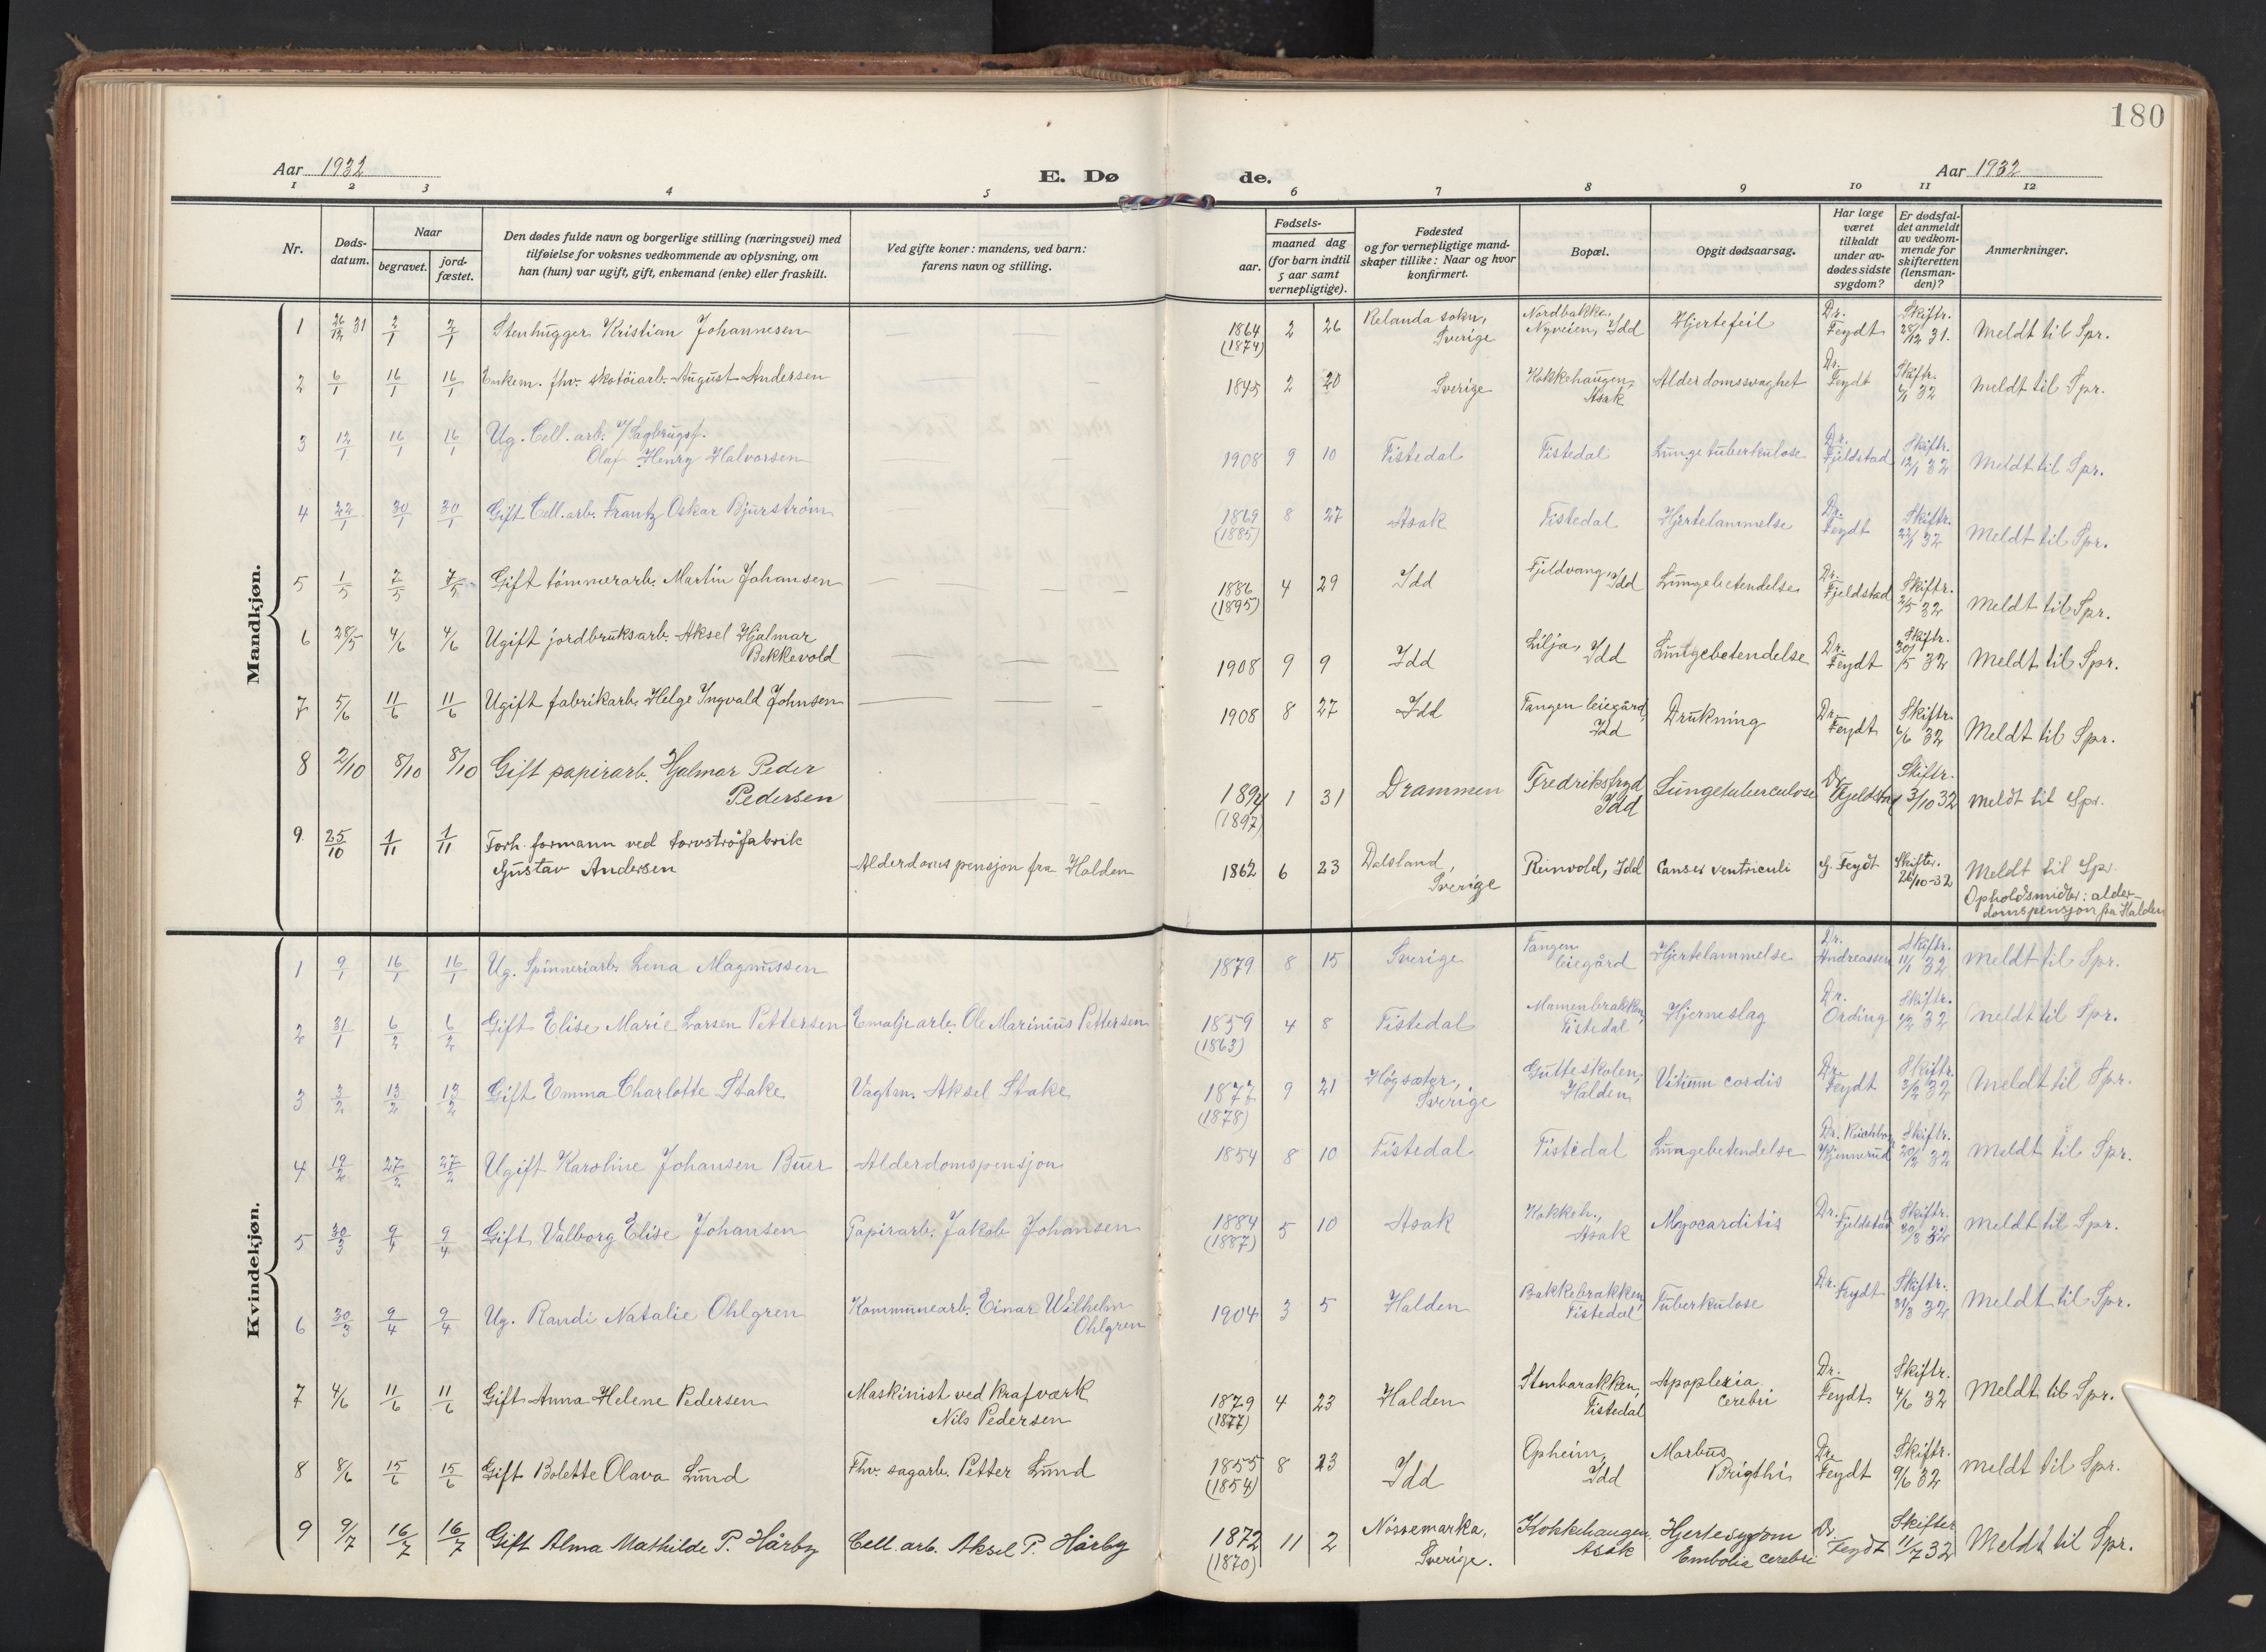 180
Aar 1932
E. Dø
de.
Aar 1932
1 2 3 4 5 6 7 8 9 10 11 12
Nr.
Døds-
datum.
Naar
begravet.
jord-
fæstet.
Den dødes fulde navn og borgerlige stilling (næringsvei) med
tilføielse for voksnes vedkommende av oplysning, om
han (hun) var ugift, gift, enkemand (enke) eller fraskilt.
Ved gifte koner: mandens, ved barn:
farens navn og stilling.
Fødsels-
aar.
maaned dag
(for barn indtil
5 aar samt
vernepligtige).
Fødested
og for vernepligtige mand-
skaper tillike: Naar og hvor
konfirmert.
Bopæl.
Opgit dødsaarsag.
Har læge
været
tilkaldt
under av-
dødes sidste
sygdom?
Er dødsfal-
det anmeldt
av vedkom-
mende for
skifteretten
(lensman-
den)?
Anmerkninger.
Mandkjøn.
1 26/12 31 2/1 2/1 Stenhugger Kristian Johannesen — — — 1864 (1874) 2 26 Relanda sokn, Sverige Nordbakke, Nyveien, Idd Hjertefeil Dr. Feydt Skiftr. 28/12 31. Meldt til Spr.
2 6/1 16/1 16/1 Enkem. fhv. skotøiarb. August Andersen — — — 1845 2 20 Sverige Kokkehaugen, Asak Alderdomssvaghet Dr. Feydt Skiftr. 6/1 32 Meldt til Spr.
3 12/1 16/1 16/1 Ug. Cell. arb. v/ Sagbrugsf. Olaf Henry Halvorsen — — — 1908 9 10 Tistedal Tistedal Lungetuberkulose Dr. Fjeldstad Skiftr. 12/1 32 Meldt til Spr.
4 22/1 30/1 30/1 Gift Cell. arb. Frantz Oskar Bjurström — — — 1869 (1885) 8 27 Asak Tistedal Hjertelammelse Dr. Feydt Skiftr. 22/1 32 Meldt til Spr.
5 1/5 7/5 7/5 Gift tømmerarb. Martin Johansen — — — 1886 (1895) 4 29 Idd Fjeldvang, Idd Lungebetendelse Dr. Fjeldstad Skiftr. 2/5 32 Meldt til Spr.
6 28/5 4/6 4/6 Ugift jordbruksarb. Aksel Hjalmar Bekkevold — — — 1908 9 9 Idd Lilja, Idd Lungebetendelse Dr. Feydt Skiftr. 30/5 32 Meldt til Spr.
7 5/6 11/6 11/6 Ugift fabrikarb. Helge Ingvald Johnsen — — — 1908 8 27 Idd Tangen leiegård, Idd Drukning Dr. Feydt Skiftr. 6/6 32 Meldt til Spr.
8 2/10 8/10 8/10 Gift papirarb. Hjalmar Peder Pedersen — — 1894 (1897) 1 31 Drammen Fredriksfryd Idd Lungetuberculose Dr. Fjeldstad Skiftr. 3/10 32 Meldt til Spr.
9. 25/10 1/11 1/11 Forh. formann ved torvstrøfabrik Gustav Andersen Alderdomspensjon fra Halden 1862 6 23 Dalsland, Sverige Reinvold, Idd Canser ventriculi G. Feydt Skifter. 26/10-32 Meldt til Spr. Opholdsmidler: alder-
domspensjon fra Halden
Kvindekjøn.
1 9/1 16/1 16/1 Ug. Spinneriarb. Lena Magnussen 1879 8 15 Sverige Tangen leiegård Hjertelammelse Dr. Andreassen Skiftr. 11/1 32 Meldt til Spr.
2 31/1 6/2 6/2 Gift Elise Marie Larsen Pettersen Emaljearb. Ole Marinius Pettersen 1859 (1863) 4 8 Tistedal Mamenbrakken, Tistedal Hjerneslag Dr. Ording Skiftr. 1/2 32 Meldt til Spr.
3 3/2 13/2 13/2 Gift Emma Charlotte Stake Vagtm. Aksel Stake 1877 (1878) 9 21 Högsäter, Sverige Gutteskolen, Halden Vitium cordis Dr. Feydt Skiftr. 3/2 32 Meldt til Spr.
4 19/2 27/2 27/2 Ugift Karoline Johansen Buer Alderdomspensjon 1854 8 10 Tistedal Tistedal Lungebetendelse Dr. Skiftr. 20/2 32 Meldt til Spr.
5 30/3 9/4 9/4 Gift Valborg Elise Johansen Papirarb. Jakob Johansen 1884 (1887) 5 10 Asak Kokkeh., Asak Myocarditis Dr. Fjeldstad Skiftr. 30/3 32 Meldt til Spr.
6 30/3 9/4 9/4 Ug. Randi Natalie Ohlgren Kommunearb. Einar Wilhelm Ohlgren 1904 3 5 Halden Bakkebrakken, Tistedal Tuberkulose Dr. Feydt Skiftr. 31/3 32 Meldt til Spr.
7 4/6 11/6 11/6 Gift Anna Helene Pedersen Maskinist ved krafværk Nils Pedersen 1879 (1877) 4 23 Halden Stenbarakken, Tistedal Apoplexia cerebri Dr. Feydt Skiftr. 4/6 32 Meldt til Spr.
8 8/6 15/6 15/6 Gift Bolette Olava Lund Fhv. sagarb. Petter Lund 1855 (1854) 8 23 Idd Opheim, Idd Morbus Brigthi Dr. Feydt Skiftr. 9/6 32 Meldt til Spr.
9 9/7 16/7 16/7 Gift Alma Mathilde P. Hårby Cell. arb. Aksel P. Hårby 1872 (1870) 11 2 Nössemarka, Sverige. Kokkehaugen, Asak Hjertesygdom Embolia cerebri Dr. Feydt Skifter 11/7 32 Meldt til Spr.